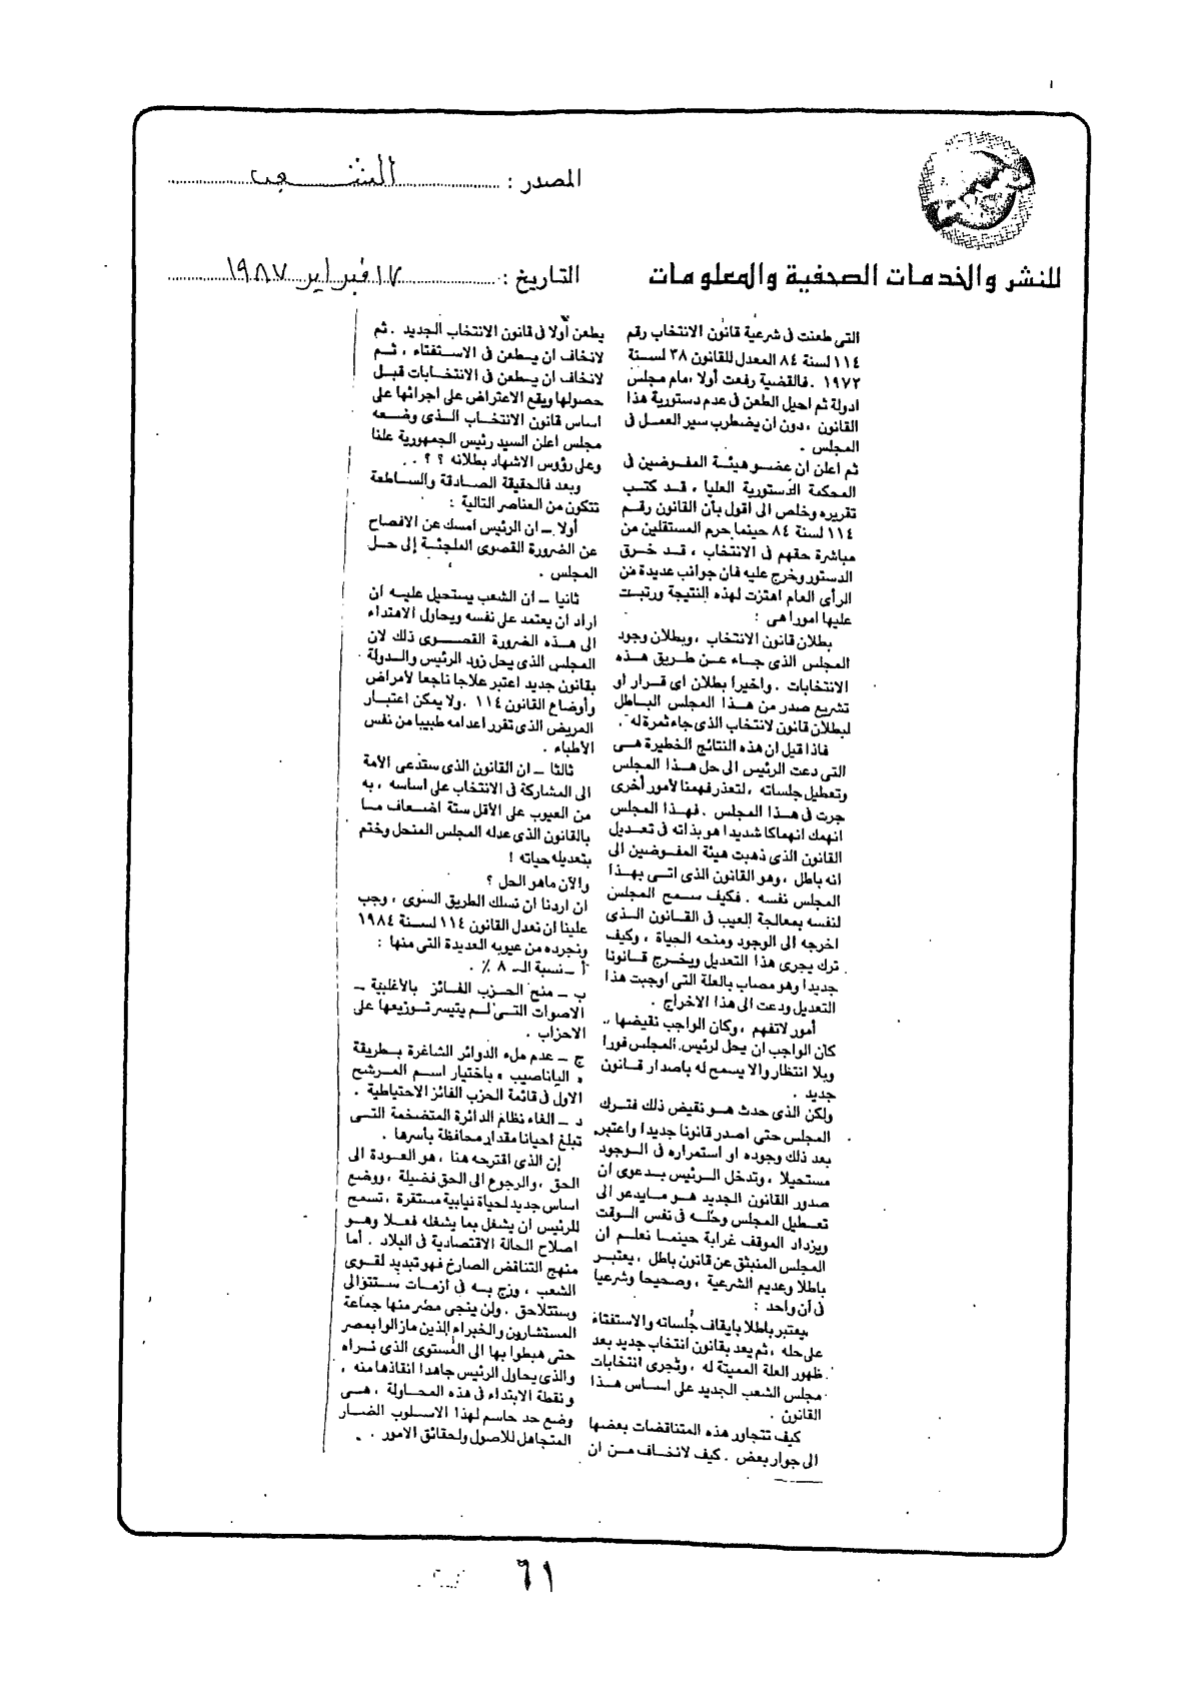 المصدر : الشعب
للنشر والخدمات الصحفية والمعلومات
التاريخ : ١٧ فبراير ١٩٨٧
التى طعنت فى شرعية قانون الانتخاب رقم
١١٤ لسنة ٨٤ المعدل للقانون ٣٨ لسنة
١٩٧٢ . فالقضية رفعت أولا امام مجلس
ادولة ثم احيل الطعن فى عدم دستورية هذا
القانون ، دون ان يضطرب سير العمل فى
المجلس .
ثم اعلن ان عضو هيئة المفوضين فى
المحكمة الدستورية العليا ، قد كتب
تقريره وخلص الى اقول بأن القانون رقم
١١٤ لسنة ٨٤ حينما حرم المستقلين من
مباشرة حقهم فى الانتخاب ، قد خرق
الدستور وخرج عليه فان جوانب عديدة من
الرأى العام اهتزت لهذه النتيجة ورتبت
عليها امورا هى :
بطلان قانون الانتخاب ، وبطلان وجود
المجلس الذى جاء عن طريق هذه
الانتخابات . واخيرا بطلان اى قرار او
تشريع صدر من هذا المجلس الباطل
لبطلان قانون لانتخاب الذى جاء ثمرة له .
فاذا قيل ان هذه النتائج الخطيرة هى
التى دعت الرئيس الى حل هذا المجلس
وتعطيل جلساته ، لتعذر فهمنا لأمور أخرى
جرت فى هذا المجلس . فهذا المجلس
انهمك انهماكا شديدا هو بذاته فى تعديل
القانون الذى ذهبت هيئة المفوضين الى
انه باطل ، وهو القانون الذى اتى بهذا
المجلس نفسه . فكيف سمح المجلس
لنفسه بمعالجة العيب فى القانون الذى
اخرجه الى الوجود ومنحه الحياة ، وكيف
ترك يجرى هذا التعديل ويخرج قانونا
جديدا وهو مصاب بالعلة التى اوجبت هذا
التعديل ودعت الى هذا الاخراج .
أمور لاتفهم ، وكان الواجب نقيضها ..
كان الواجب ان يحل لرئيس المجلس فورا
وبلا انتظار والا يسمح له باصدار قانون
جديد .
ولكن الذى حدث هو نقيض ذلك فترك
المجلس حتى اصدر قانونا جديدا واعتبر
بعد ذلك وجوده او استمراره فى الوجود
مستحيلا ، وتدخل الرئيس بدعوى ان
صدور القانون الجديد هو مايدعو الى
تعطيل المجلس وحله فى نفس الوقت
ويزداد الموقف غرابة حينما نعلم ان
المجلس المنبثق عن قانون باطل ، يعتبر
باطلا وعديم الشرعية ، وصحيحا وشرعيا
فى أن واحد :
يعتبر باطلا بايقاف جلساته والاستفتاء
على حله ، ثم يعد بقانون انتخاب جديد بعد
ظهور العلة المميتة له ، وتجرى انتخابات
مجلس الشعب الجديد على اساس هذا
القانون .
كيف تتجاور هذه المتناقضات بعضها
الى جوار بعض . كيف لانخاف من ان
يطعن أولا فى قانون الانتخاب الجديد . ثم
لانخاف ان يطعن فى الاستفتاء ، ثم
لانخاف ان يطعن فى الانتخابات قبل
حصولها ويقع الاعتراض على اجرائها على
اساس قانون الانتخاب الذى وضعه
مجلس اعلن السيد رئيس الجمهورية علنا
وعلى رؤوس الاشهاد بطلانه ؟ ؟ . .
وبعد فالحقيقة الصادقة والساطعة
تتكون من العناصر التالية :
أولا ــ ان الرئيس امسك عن الافصاح
عن الضرورة القصوى الملجئة إلى حل
المجلس .
ثانيا ــ ان الشعب يستحيل عليه ان
اراد ان يعتمد على نفسه ويحاول الاهتداء
الى هذه الضرورة القصوى ذلك لان
المجلس الذى يحل زود الرئيس والدولة
بقانون جديد اعتبر علاجا ناجعا لأمراض
وأوضاع القانون ١١٤ . ولا يمكن اعتبار
المريض الذى تقرر اعدامه طبيبا من نفس
الأطباء .
ثالثا ــ ان القانون الذى ستدعى الأمة
الى المشاركة فى الانتخاب على اساسه ، به
من العيوب على الأقل ستة اضعاف ما
بالقانون الذى عدله المجلس المنحل وختم
بتعديله حياته !
والآن ماهو الحل ؟
ان اردنا ان نسلك الطريق السوى ، وجب
علينا ان نعدل القانون ١١٤ لسنة ١٩٨٤
ونجرده من عيوبه العديدة التى منها :
أ ــ نسبة الــ ٨ ٪ .
ب ــ منح الحزب الفائز بالأغلبية ــ
الاصوات التى لم يتيسر توزيعها على
الاحزاب .
ج ــ عدم ملء الدوائر الشاغرة بطريقة
« الياناصيب » باختيار اسم المرشح
الاول فى قائمة الحزب الفائز الاحتياطية .
د ــ الغاء نظام الدائرة المتضخمة التى
تبلغ احيانا مقدار محافظة بأسرها .
إن الذى اقترحه هنا ، هو العودة الى
الحق ، والرجوع الى الحق فضيلة ، ووضع
اساس جديد لحياة نيابية مستقرة ، تسمح
للرئيس ان يشغل بما يشغله فعلا وهو
اصلاح الحالة الاقتصادية فى البلاد . أما
منهج التناقض الصارخ فهو تبديد لقوى
الشعب ، وزج به فى ازمات ستتوالى
وستتلاحق . ولن ينجى مصر منها جماعة
المستشارون والخبراء الذين مازالوا بمصر
حتى هبطوا بها الى المستوى الذى نراه
والذى يحاول الرئيس جاهدا انقاذها منه ،
ونقطة الابتداء فى هذه المحاولة ، هى
وضع حد حاسم لهذا الاسلوب الضار
المتجاهل للاصول ولحقائق الامور . .
٦١